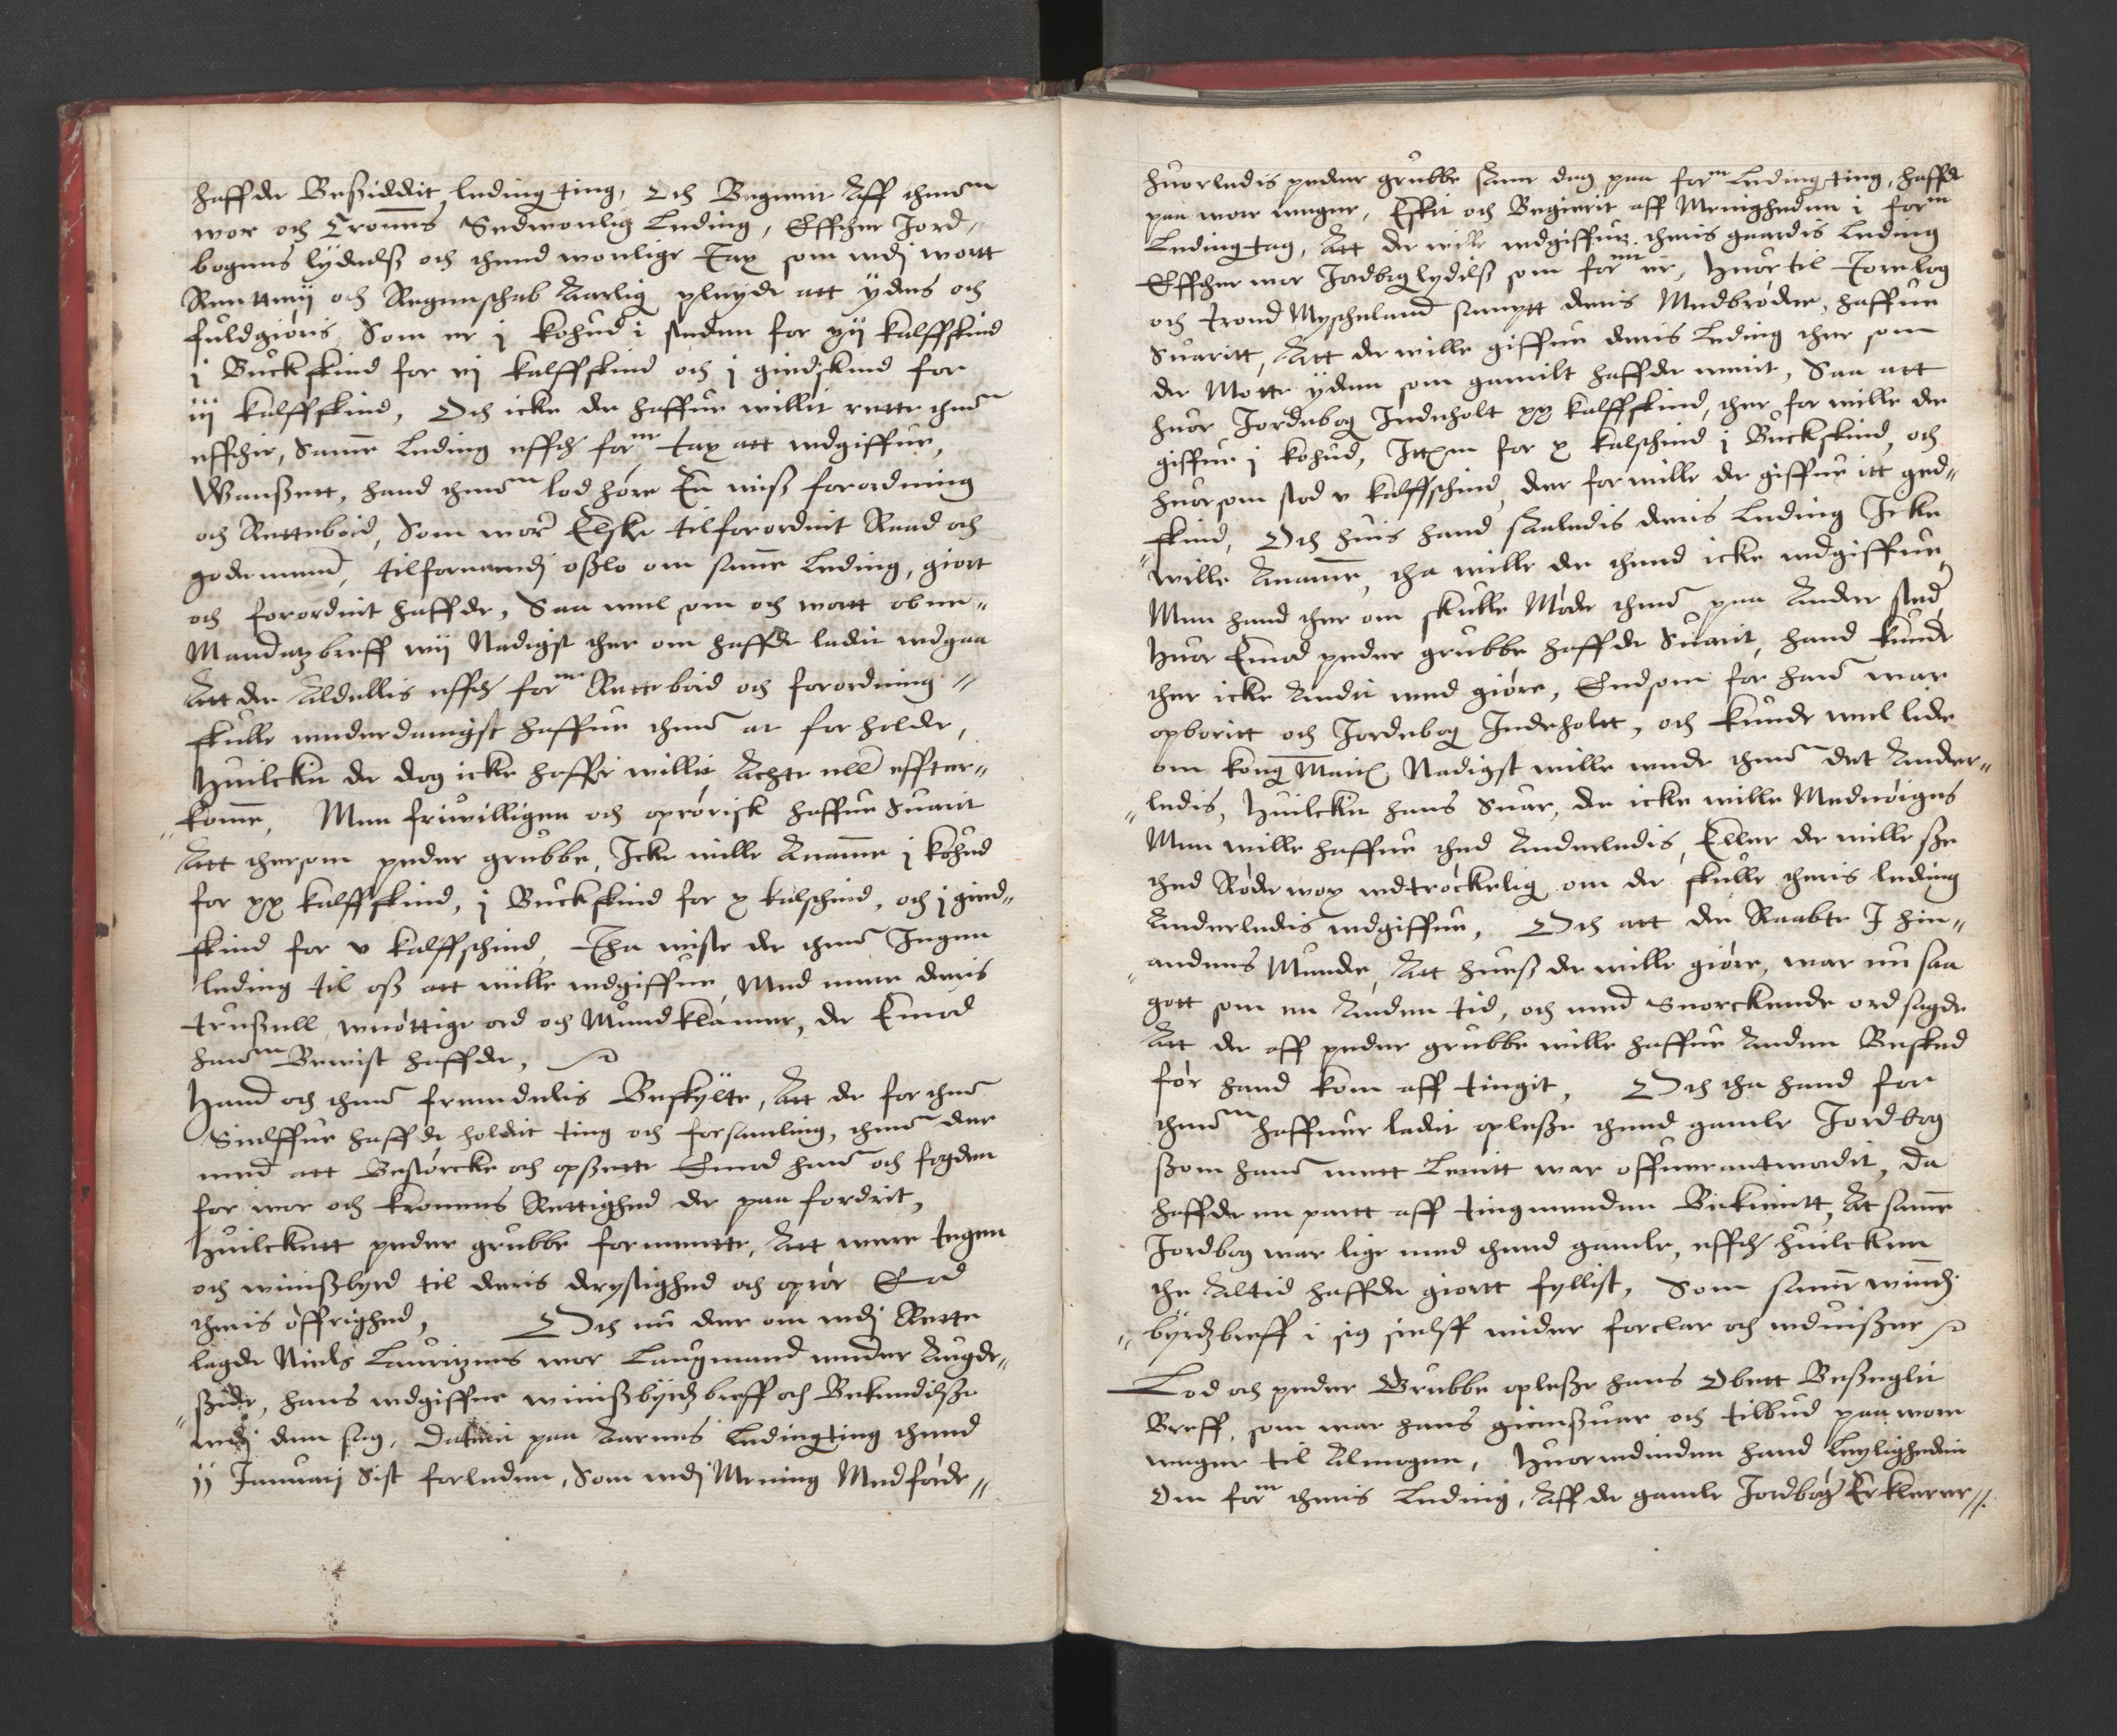 haffde Beßiddit leding ting, Och Begierit Aff thenom
wor och Cronnens Sedwonlig Leding, Effther Jord„
bogens lydelß och thend wonlige Tax som udj wortt
Renttherij och Regenschab Aarlig pleyde att ydes och
fuldgiøris, Som er j kohud i steden for xij kalffskind
j Buckskind for vj kalffskind och j giedskind for
iij kalffskind, Och icke de haffue willit rette them
effther, Samme Leding effth form tax att udgiffue,
Wanßett, hand thenom lod høre En wiß forordning
och Rettebod, Som wor Elske tilforordnit Raad och
gode mend, tilforn udj oßlo om samme Leding, giort
och forordnit haffde, Saa well som och wortt obne„
Mandatzbreff wij Nadigst ther om haffde ladit udgaa
Att de Aldellis effth form Rettebod och forordning„
skulle underdanigst haffue them at forholde,
Huilckit de dog icke haffr willit Achte ell effter„
„komme, Men friwilligen och oprørisk haffue Suarit
Att thersom peder grubbe, Icke wille Anamme j kohud
for xx kalffskind, j Buckskind for x kalschind, och j gied„
skind for v kalffschind, Tha wiste de them Ingen
leding til oß att wille udgiffue, Med mere deris
trußell, unøttige ord och Mundklammer, de Emod
hanom Bewist haffde,
Hand och them fremdelis Beskylte, Att de for them
Sielffue haffde holdit ting och forsamling, them der
med att Bestørcke och opßette Emod ham och fogden
for wor och kronens Rettighed der paa fordrit,
Huilckett peder grubbe formentte, Att were tegen
och winißbyrd til deris drystighed och oprør Emod
theris øffrighed, Och nu der om udj Rette
lagde Niels Lauritzens wor Laugmand under Augde„
„ßide, hans udgiffne winißbyrdz breff och Bekendelße
udj den sag, Datum paa Aarnes ledingting thend
11 Januarj Sist forleden, Som udj Mening Medførde„
huorledis peder grubbe samme dag paa form Ledingting, haffde
paa wore wegne, Eskit och Begierit aff Menigheden i form
Ledingtag, Att de wille udgiffue theris gaardis Leding
Effther wor Jordbog lydelß som form er, Huor til Torelog
och trond Myscheland samptt deris Medbrødre, haffue
Suaritt, Att de wille giffue deris Leding ther som
de Motte yden som gamilt haffde werit, Saa att
huor Jordebog Indeholt xx kalffskind, ther for wille de
giffue j kohud, Ittem for x kalschind j Buckskind, och
huorsom stod v kalffschind, der for wille de giffue itt ged„
„skind, Och huis hand saaledis deris Leding Icke
wille Anamme, tha wille de thend icke udgiffue,
Men hand ther om skulle Møde them paa Ander sted,
Huor Emod peder grubbe haffde Suarit, hand kunde
ther icke Andit wed giøre, End som for ham war
opboritt och Jordebog Indeholtt, och kunde well lide
om kong Maitt Nadigst wille unde them det Ander„
„ledis, Huilckit hans Suar, de icke wille Mednøiges
Men wille haffue thed Anderledis, Eller de wille ße
thed Røde wox udtrøckelig om de skulle theris leding
Anderledis udgiffue, Och att de Raabte I hin„
„andens Munde, Att hueß de wille giøre, war nu saa
gott som en Anden tid, och med Snorckende ord sagde
Att de aff peder grubbe wille haffue Anden Besked
før hand kom aff tingit, Och tha hand for
thenom haffuer ladit opleße thend gamle Jordbog
ßom ham mett Lenitt war offuerantwordit, Da
haffde en partt aff tingmenden Bekientt, At samme
Jordbog war lige med thend gamle, effth huilcken
the Altid haffde giortt fyllist, Som samme winndz
„byrdz breff i sig sielff wider forclar och uduißer
Lod och peder Grubbe opleße hans Obett Beßeglit
Breff, som war hans gienßuar och tilbud paa wore
wegne til Almogen, Huorudinden hand Leyligheden
Om form theris Leding, Aff de gamle Jordbog Erklerer